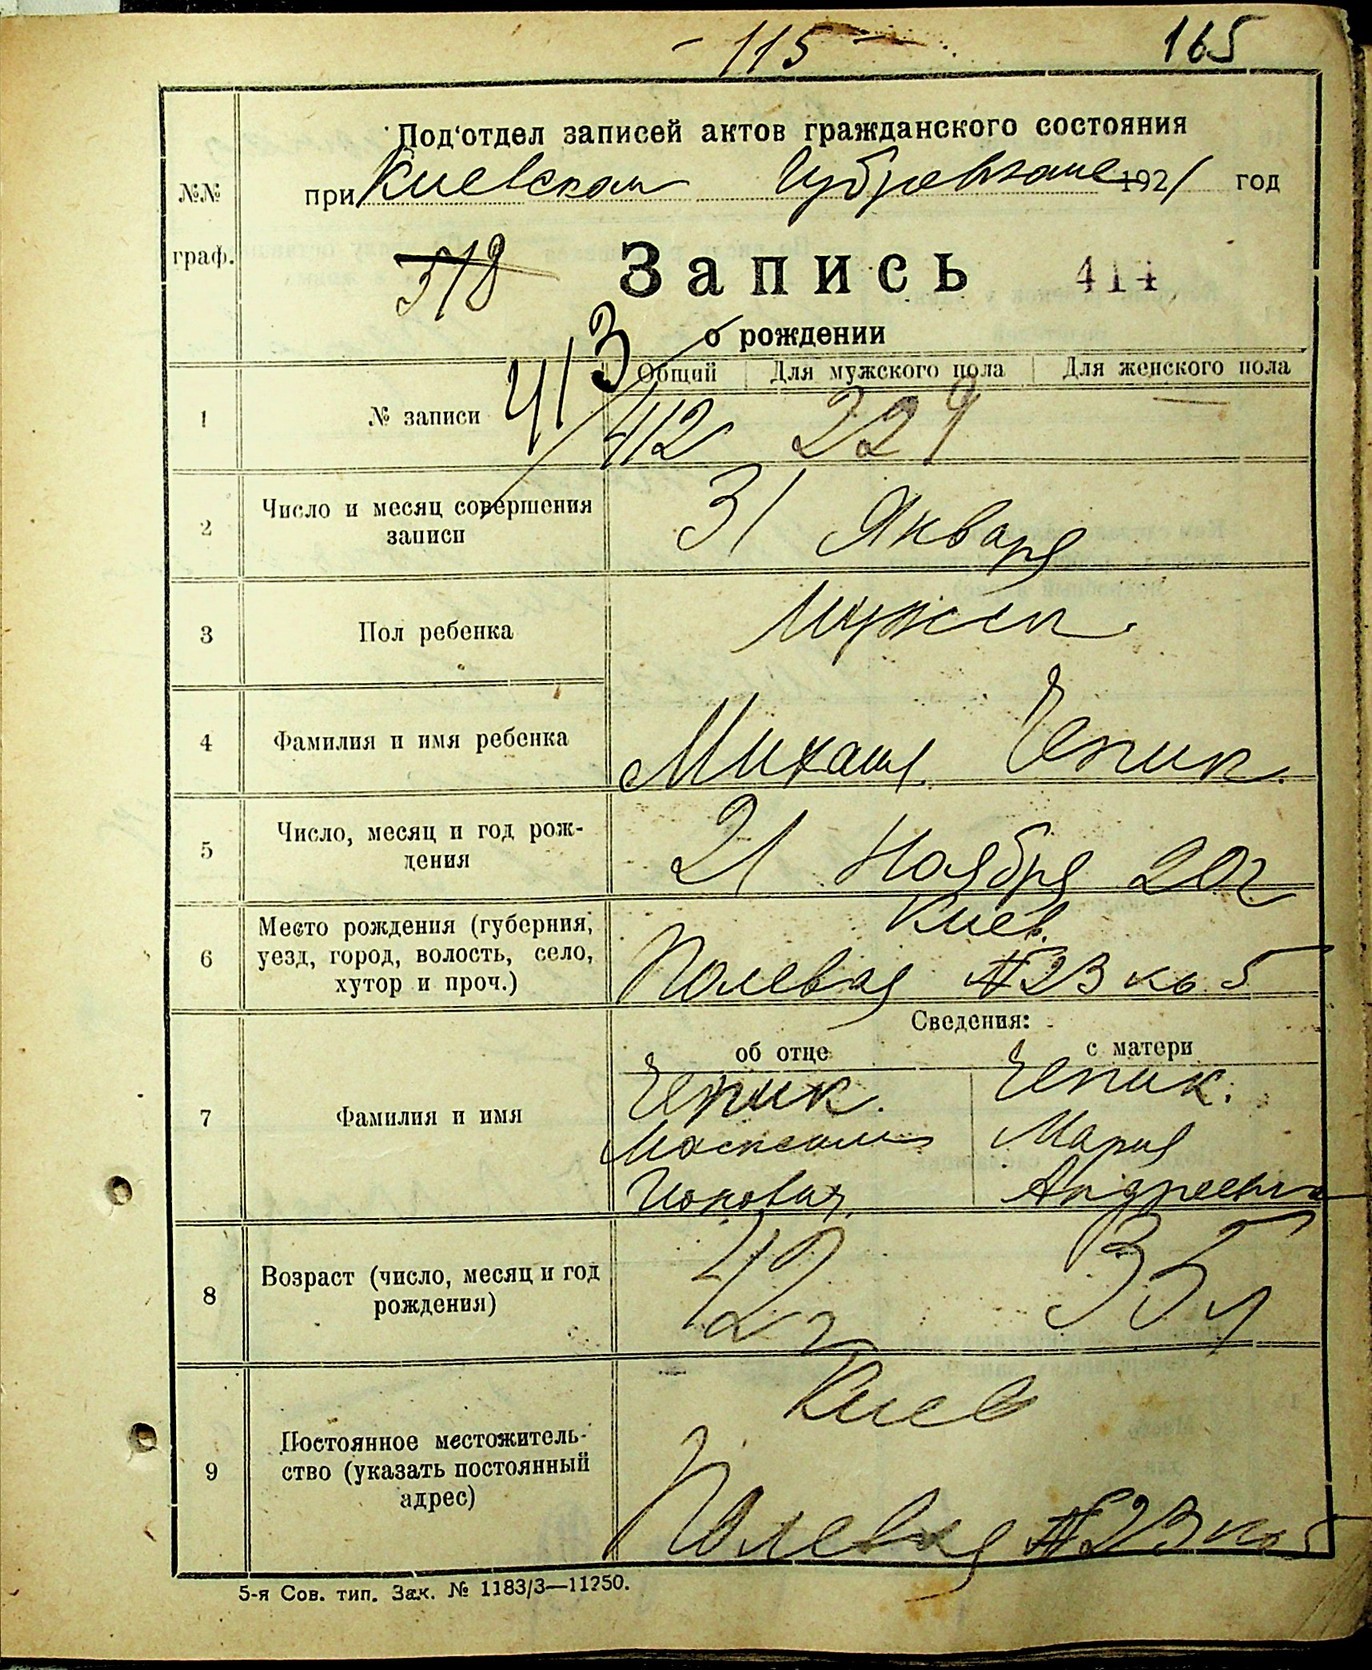 - 115 -
165
Под'отдел записей актов гражданского состояния
при Киевском Губревкоме 1921 год
№№ граф.
518
Запись 414
о рождении
413
Общий Для мужского пола Для женского пола
1 № записи 412 229 —
2 Число и месяц совершения записи 31 Января
3 Пол ребенка Мужск.
4 Фамилия и имя ребенка Михаил Чепик.
5 Число, месяц и год рождения 21 Ноября 20 г
6 Место рождения (губерния, уезд, город, волость, село, хутор и проч.) Киев.
Полевая №23 кв 5
Сведения:
об отце с матери
7 Фамилия и имя Чепик. Чепик.
Максим Мария
Ионович. Андреевна
8 Возраст (число, месяц и год рождения) 42 г 35 л
9 Постоянное местожительство (указать постоянный адрес) Киев
Полевая №23 кв 5
5-я Сов. тип. Зак. № 1183/3—11250.